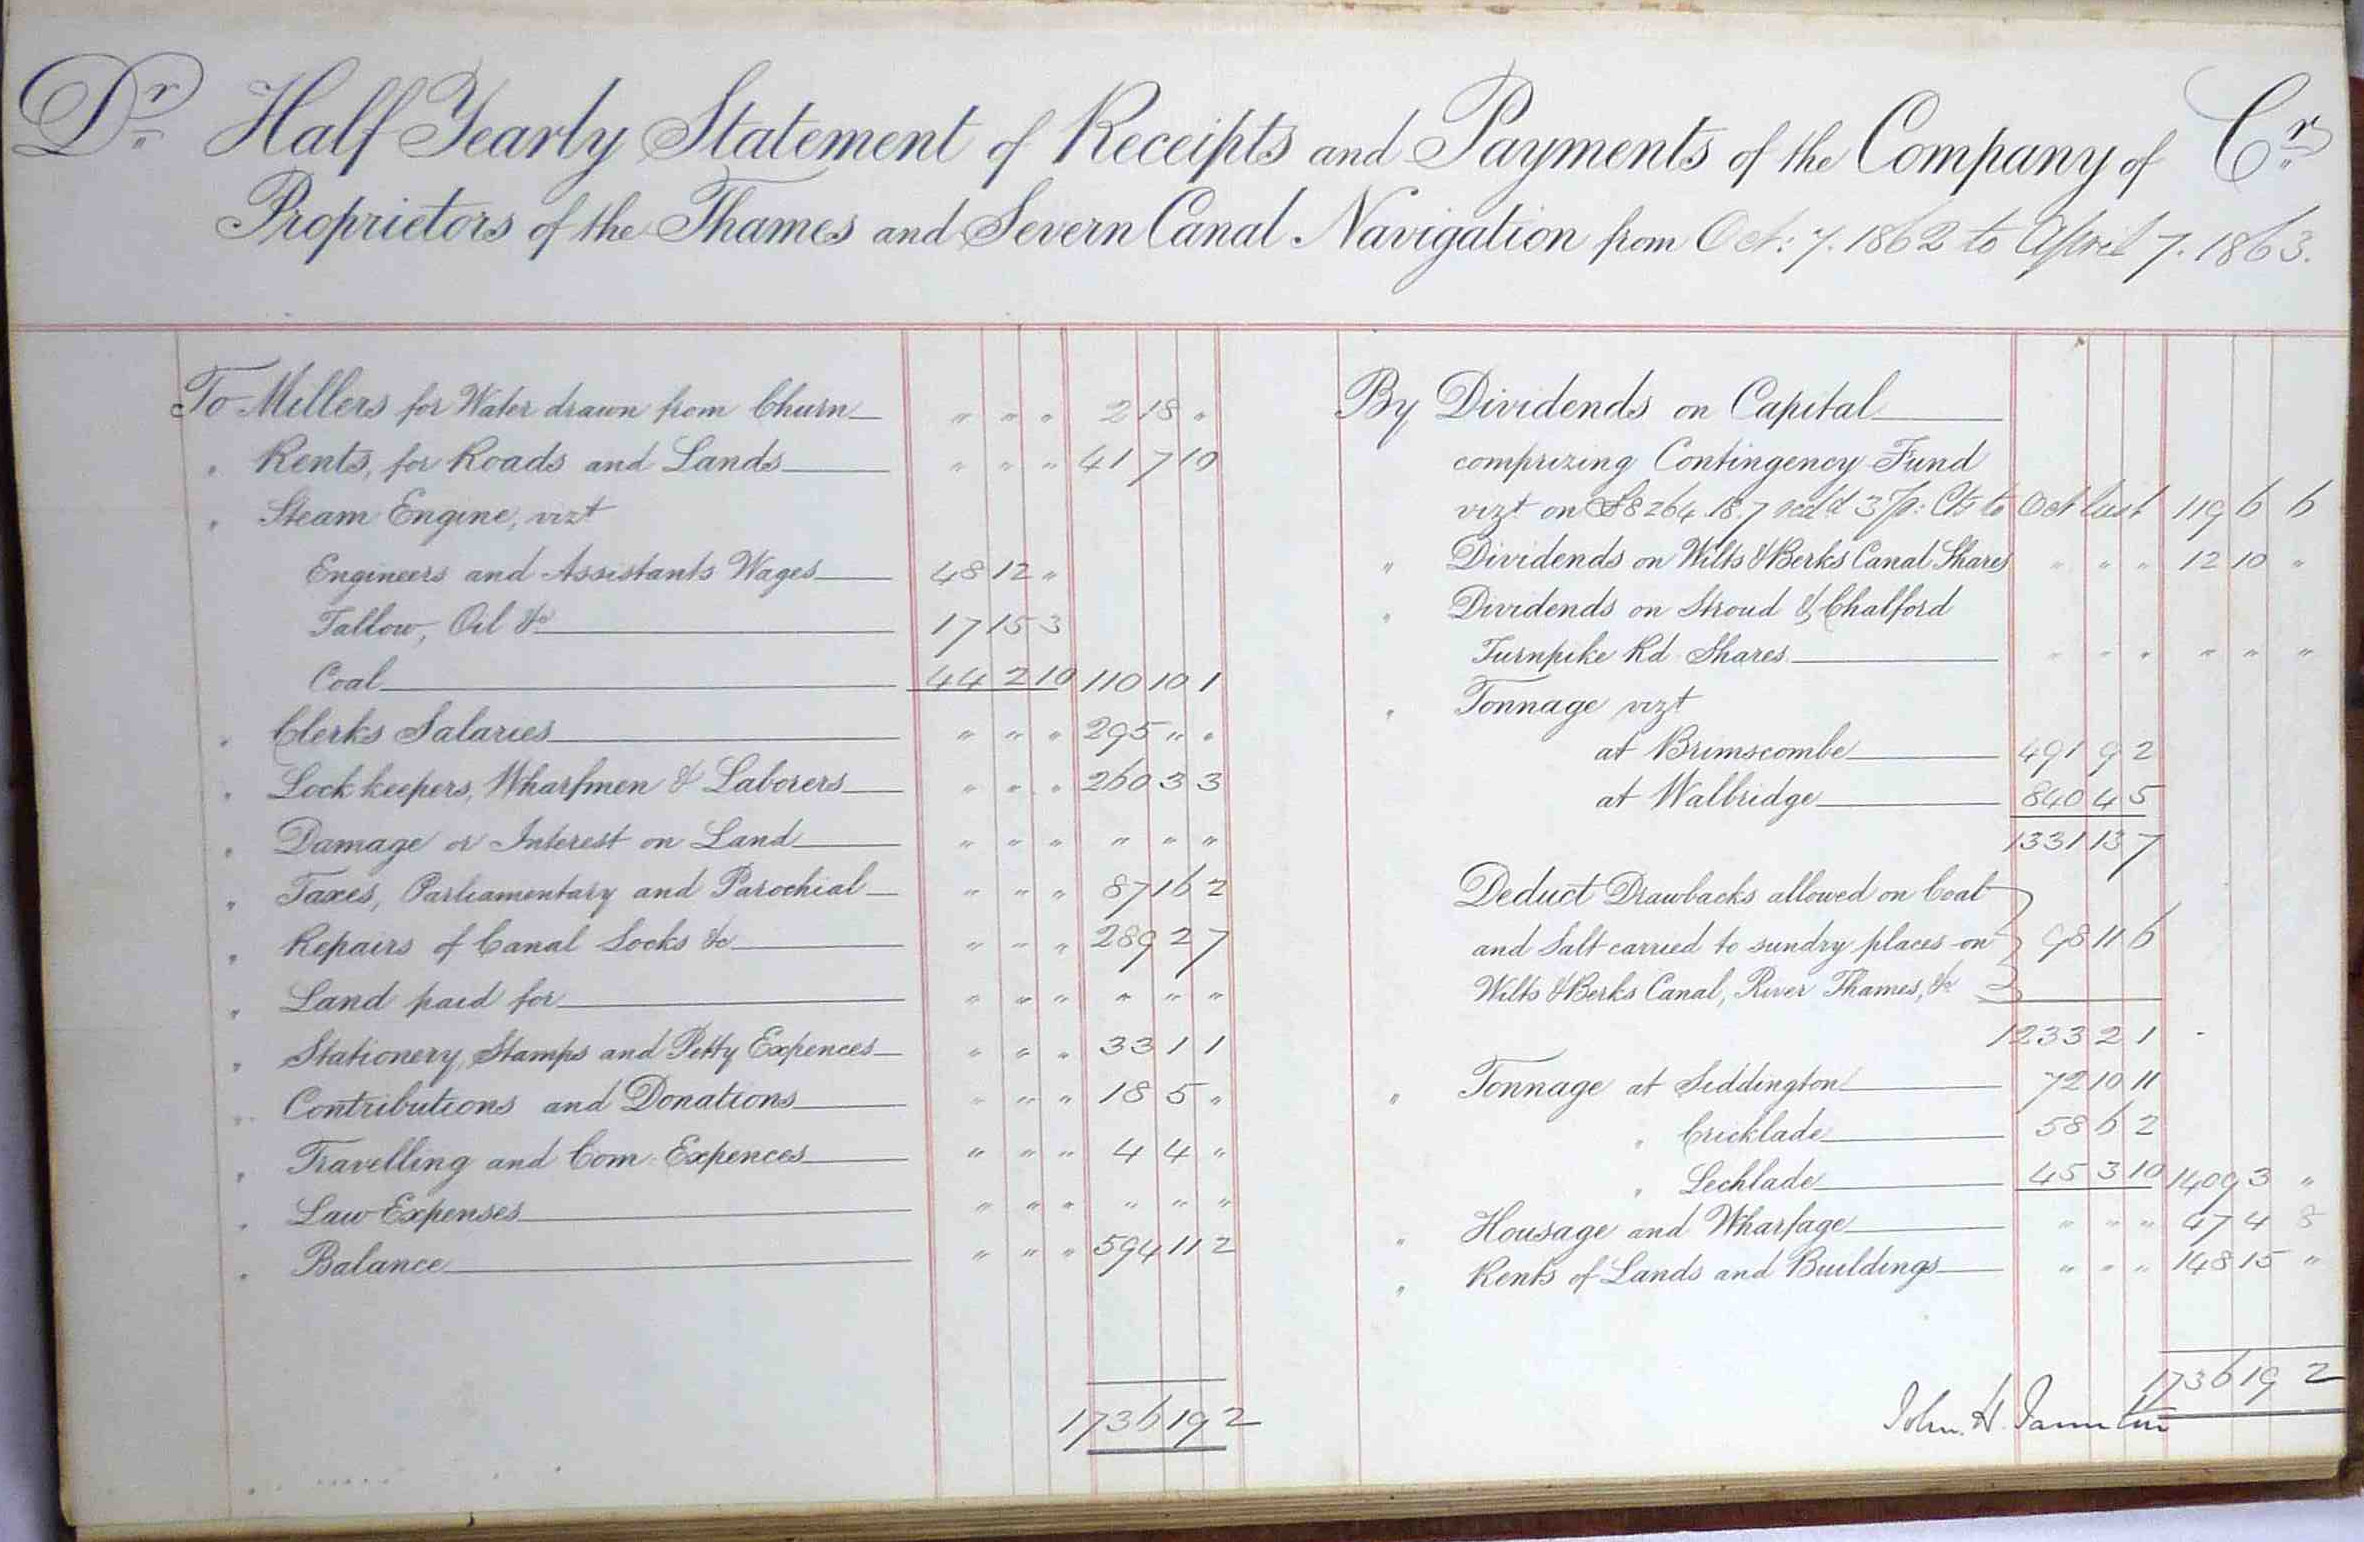 Dr Half Yearly Statement of Receipts and Payments of the Company of Cr
Proprietors of the Thames and Severn Canal Navigation from Oct: 7. 1862 to April 7. 1863.
To Millers for Water drawn from Churn " " " 2 18 "
" Rents, for Roads and Lands " " " 41 7 10
" Steam Engine, vizt
Engineers and Assistants Wages 48 12 "
Tallow, Oil &c 17 15 3
Coal 44 2 10 110 10 1
" Clerks Salaries " " " 295 " "
" Lock keepers, Wharfmen & Laborers " " " 260 3 3
" Damage or Interest on Land " " " " " "
" Taxes, Parliamentary and Parochial " " " 87 16 2
" Repairs of Canal Locks &c " " " 289 2 7
" Land paid for " " " " " "
" Stationery, Stamps and Petty Expences " " " 33 1 1
" Contributions and Donations " " " 18 5 "
" Travelling and Com: Expences " " " 4 4 "
" Law Expenses " " " " " "
" Balance " " " 594 11 2
1736 19 2
By Dividends on Capital
comprizing Contingency Fund
vizt on £8264.18.7 red'd 3 p: Cts to Oct last 119 6 6
" Dividends on Wilts & Berks Canal Shares " " " 12 10 "
" Dividends on Stroud & Chalford
Turnpike Rd Shares " " " " " "
" Tonnage vizt
at Brimscombe 491 9 2
at Walbridge 840 4 5
1331 13 7
Deduct Drawbacks allowed on Coal
and Salt carried to sundry places on 98 11 6
Wilts & Berks Canal, River Thames, &c
1233 2 1
" Tonnage at Siddington 72 10 11
" Cricklade 58 6 2
" Lechlade 45 3 10 1409 3 "
" Housage and Wharfage " " " 47 4 8
" Rents of Lands and Buildings " " " 148 15 "
1736 19 2
John. H.